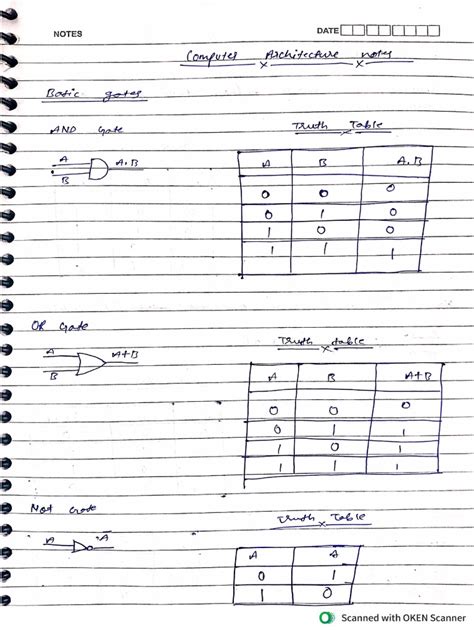 NOTES
DATE
Computer Architecture notes
Basic gates
AND gate
Truth Table
A
B
A.B
A B A.B
0 0 0
0 1 0
1 0 0
1 1 1
OR Gate
Truth table
A
B
A+B
A B A+B
0 0 0
0 1 1
1 0 1
1 1 1
Not Gate
Truth Table
A
A
A A
0 1
1 0
Scanned with OKEN Scanner